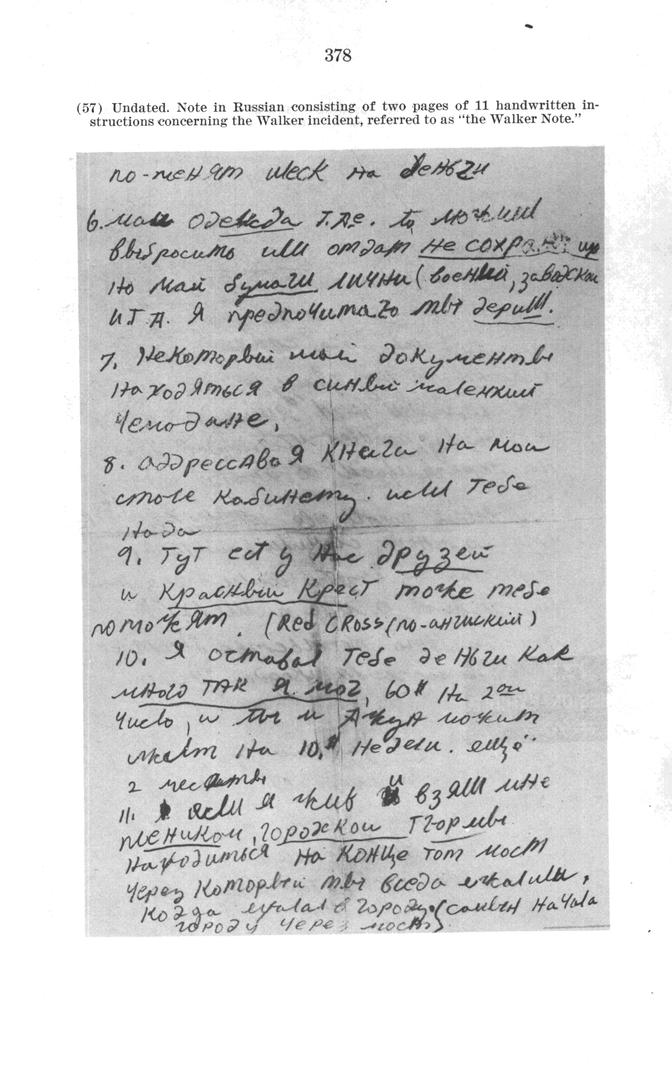 378
(57) Undated. Note in Russian consisting of two pages of 11 handwritten in-
structions concerning the Walker incident, referred to as “the Walker Note.”
по-менят на деньги
6. одежда т.п.е. ты можиш
выбросить или отдат не сохран
Но май бумаги лични (военый, заводскои
И.Т.Д. Я предпочитаю ты держиш.
7. Некоторый май документы
находяться в синый маленкий
чемодане,
8. аддрессавая книга на мои
столе кабинету. если тебе
нада
9. Тут ест у нас друзей
и Красный Крест тоже тебе
поможят. (Red CRoss (по-англиский)
10. Я оставал тебе деньги как
много ТАК Я. мог, 60# на 2ои
число, и ты и можит
на 10.# недели. ещё
2
11. если я жив и взяли мне
пленикои, городскои Ттормы
находиться на конце тот мост
через который ты всегда ежали,
когда ехала в городу. (самын начала
городу через мосты).